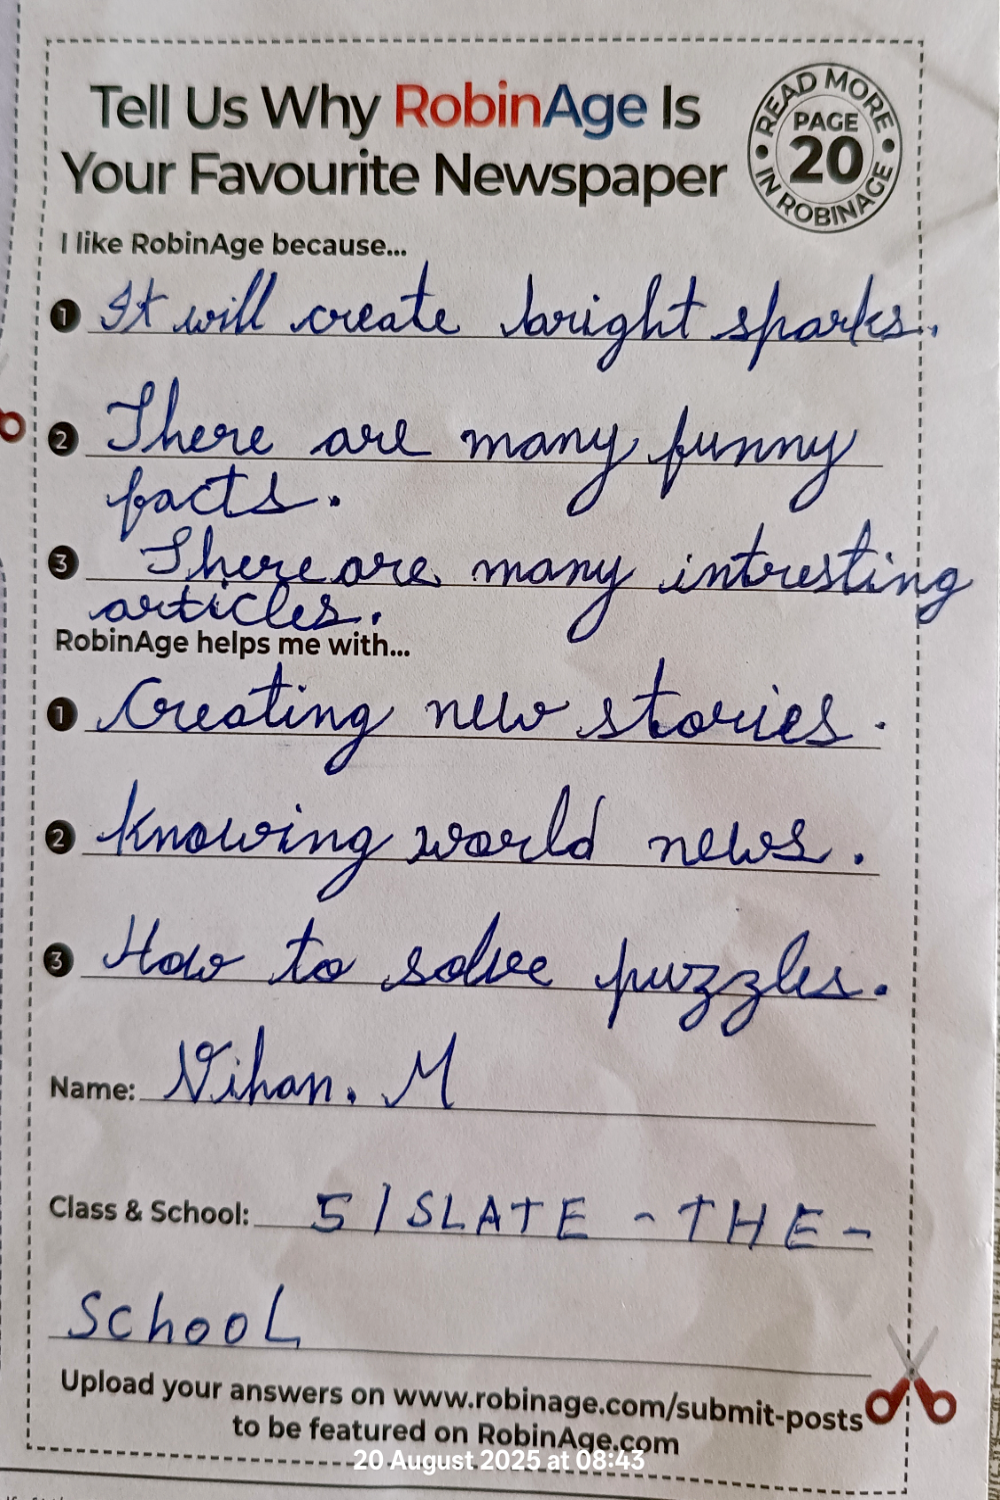 Tell Us Why RobinAge Is
Your Favourite Newspaper
READ MORE
PAGE
20
IN ROBINAGE
I like RobinAge because...
1 It will create bright sparks.
2 There are many funny
facts.
3 There are many intresting
articles.
RobinAge helps me with...
1 Creating new stories.
2 knowing world news.
3 How to solve puzzles.
Name: Vihan. M
Class & School: 5 / SLATE - THE -
SchooL
Upload your answers on www.robinage.com/submit-posts
to be featured on RobinAge.com
20 August 2025 at 08:43